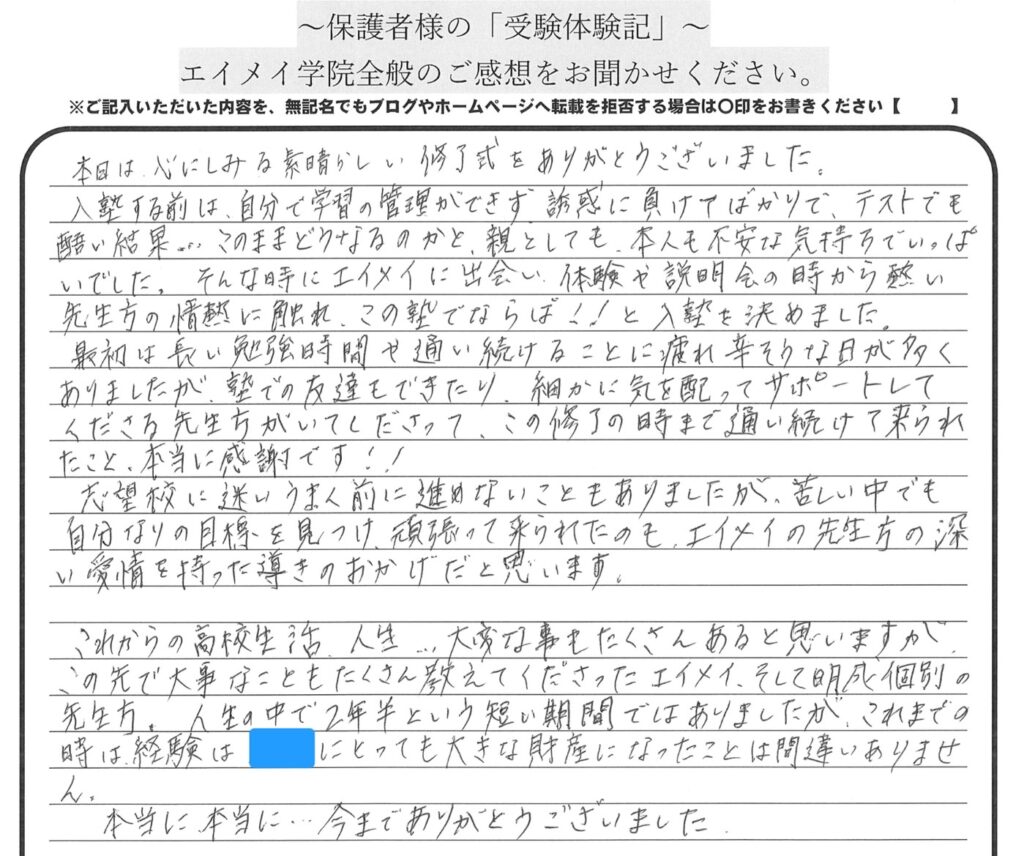 ～保護者様の「受験体験記」～
エイメイ学院全般のご感想をお聞かせください。
※ご記入いただいた内容を、無記名でもブログやホームページへ転載を拒否する場合は〇印をお書きください【　　　】
本日は、心にしみる素晴らしい修了式をありがとうございました。
入塾する前は、自分で学習の管理ができず、誘惑に負けてばかりで、テストでも
酷い結果…このままどうなるのかと、親としても、本人も不安な気持ちでいっぱ
いでした。そんな時にエイメイに出会い、体験や説明会の時から熱い
先生方の情熱に触れ、この塾でならば！！と入塾を決めました。
最初は長い勉強時間や通い続けることに疲れ辛そうな日が多く
ありましたが、塾での友達もできたり、細かに気を配ってサポートして
くださる先生方がいてくださって、この修了の時まで通い続けて来られ
たこと、本当に感謝です！！
志望校に迷いうまく前に進めないこともありましたが、苦しい中でも
自分なりの目標を見つけ、頑張って来られたのも、エイメイの先生方の深
い愛情を持った導きのおかげだと思います。
これからの高校生活、人生…大変な事もたくさんあると思いますが、
この先で大事なこともたくさん教えてくださったエイメイ、そして明成個別の
先生方。人生の中で2年半という短い期間ではありましたが、これまでの
時は、経験は　　　にとっても大きな財産になったことは間違いありませ
ん。
本当に、本当に…今までありがとうございました。